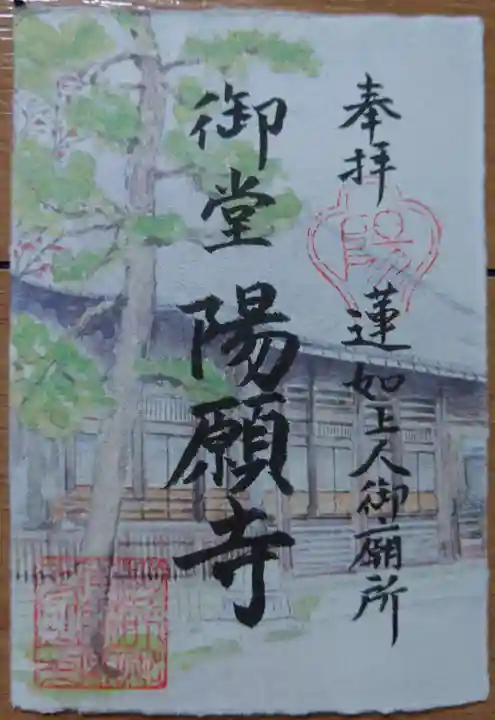 奉拝 蓮如上人御廟所
御堂 陽願寺